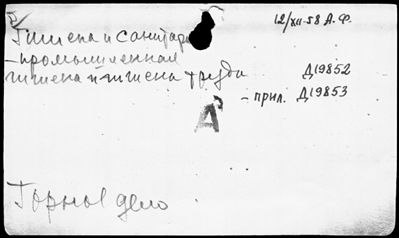 12/XII-58 А.Ф.
Гигиена и санитар
-промышленная
гигиена и гигиена труда
Д19852
- прил. Д19853
А
Горное дело